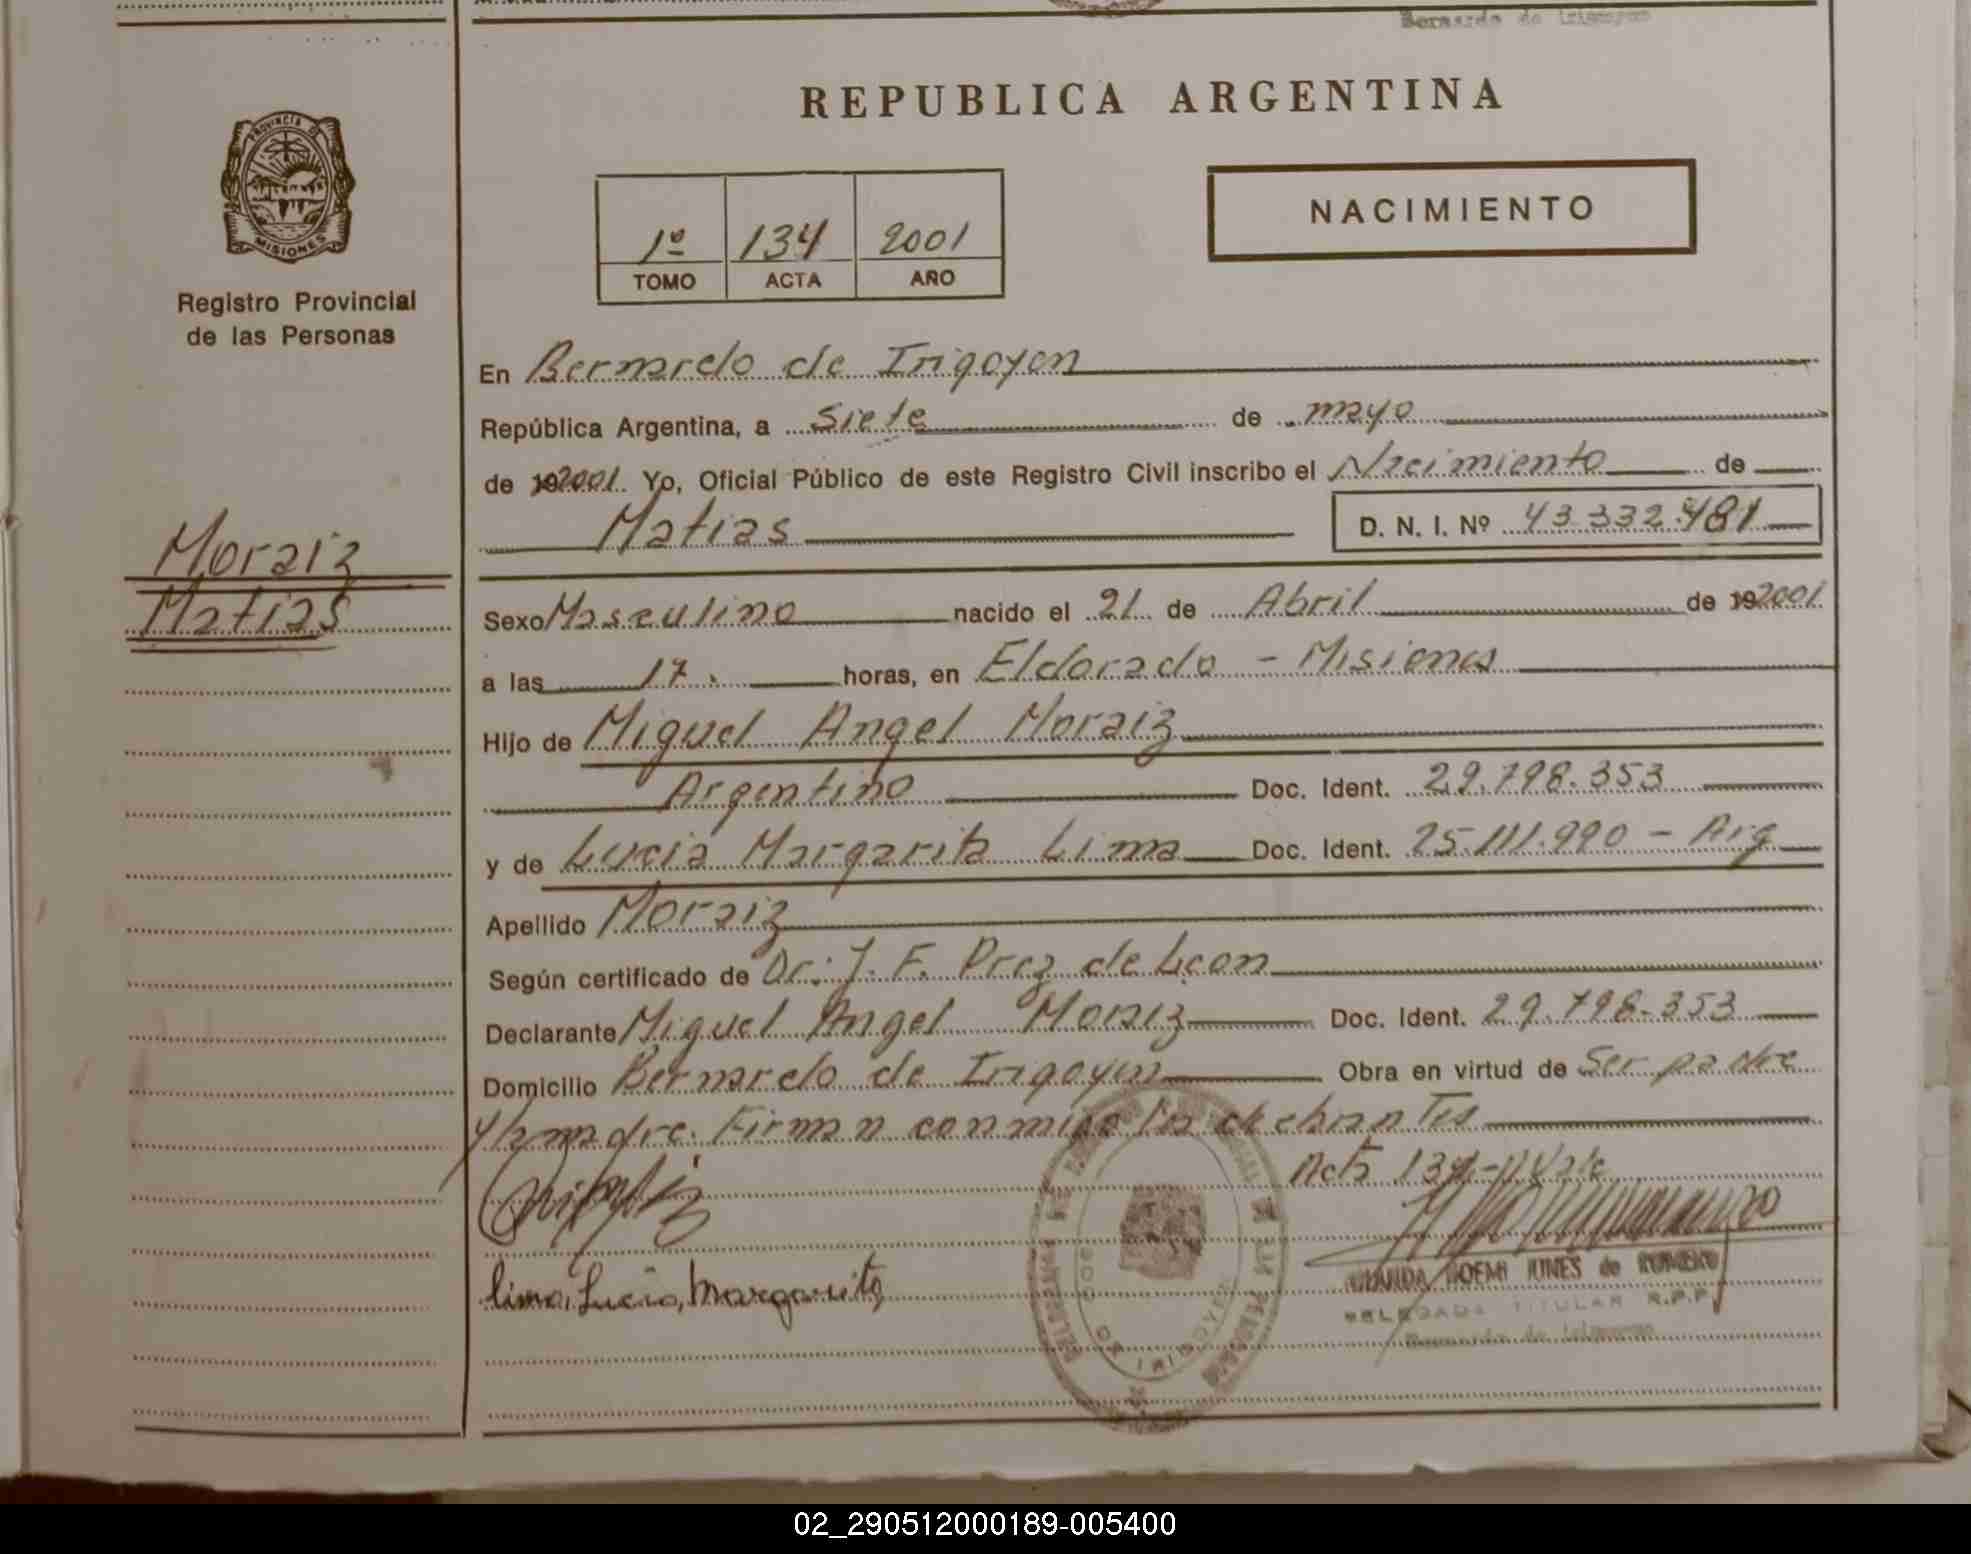 Bernardo de Irigoyen
REPUBLICA ARGENTINA
PROVINCIA DE
MISIONES
Registro Provincial
de las Personas
NACIMIENTO
1º 134 2001
TOMO ACTA AÑO
En Bernardo de Irigoyen
República Argentina, a siete de mayo
de 192001. Yo, Oficial Público de este Registro Civil inscribo el Nacimiento de
Matias D. N. I. Nº 43.332.481
Moraiz
Matias
Sexo Masculino nacido el 21 de Abril de 192001
a las 17. horas, en Eldorado - Misiones
Hijo de Miguel Angel Moraiz
Argentino Doc. Ident. 29.798.353
y de Lucia Margarita Lima Doc. Ident. 25.111.990 - Arg
Apellido Moraiz
Según certificado de Dr. J. F. Prez de Leon
Declarante Miguel Angel Moraiz Doc. Ident. 29.798.353
Domicilio Bernardo de Irigoyen Obra en virtud de Ser padre
y la madre. Firman conmigo los declarantes
Acta 134 - Vale
Lima, Lucia, Margarita
NOEMI JUNES de ROMERO
DELEGADA TITULAR R.P.P.
Bernardo de Irigoyen
02_290512000189-005400